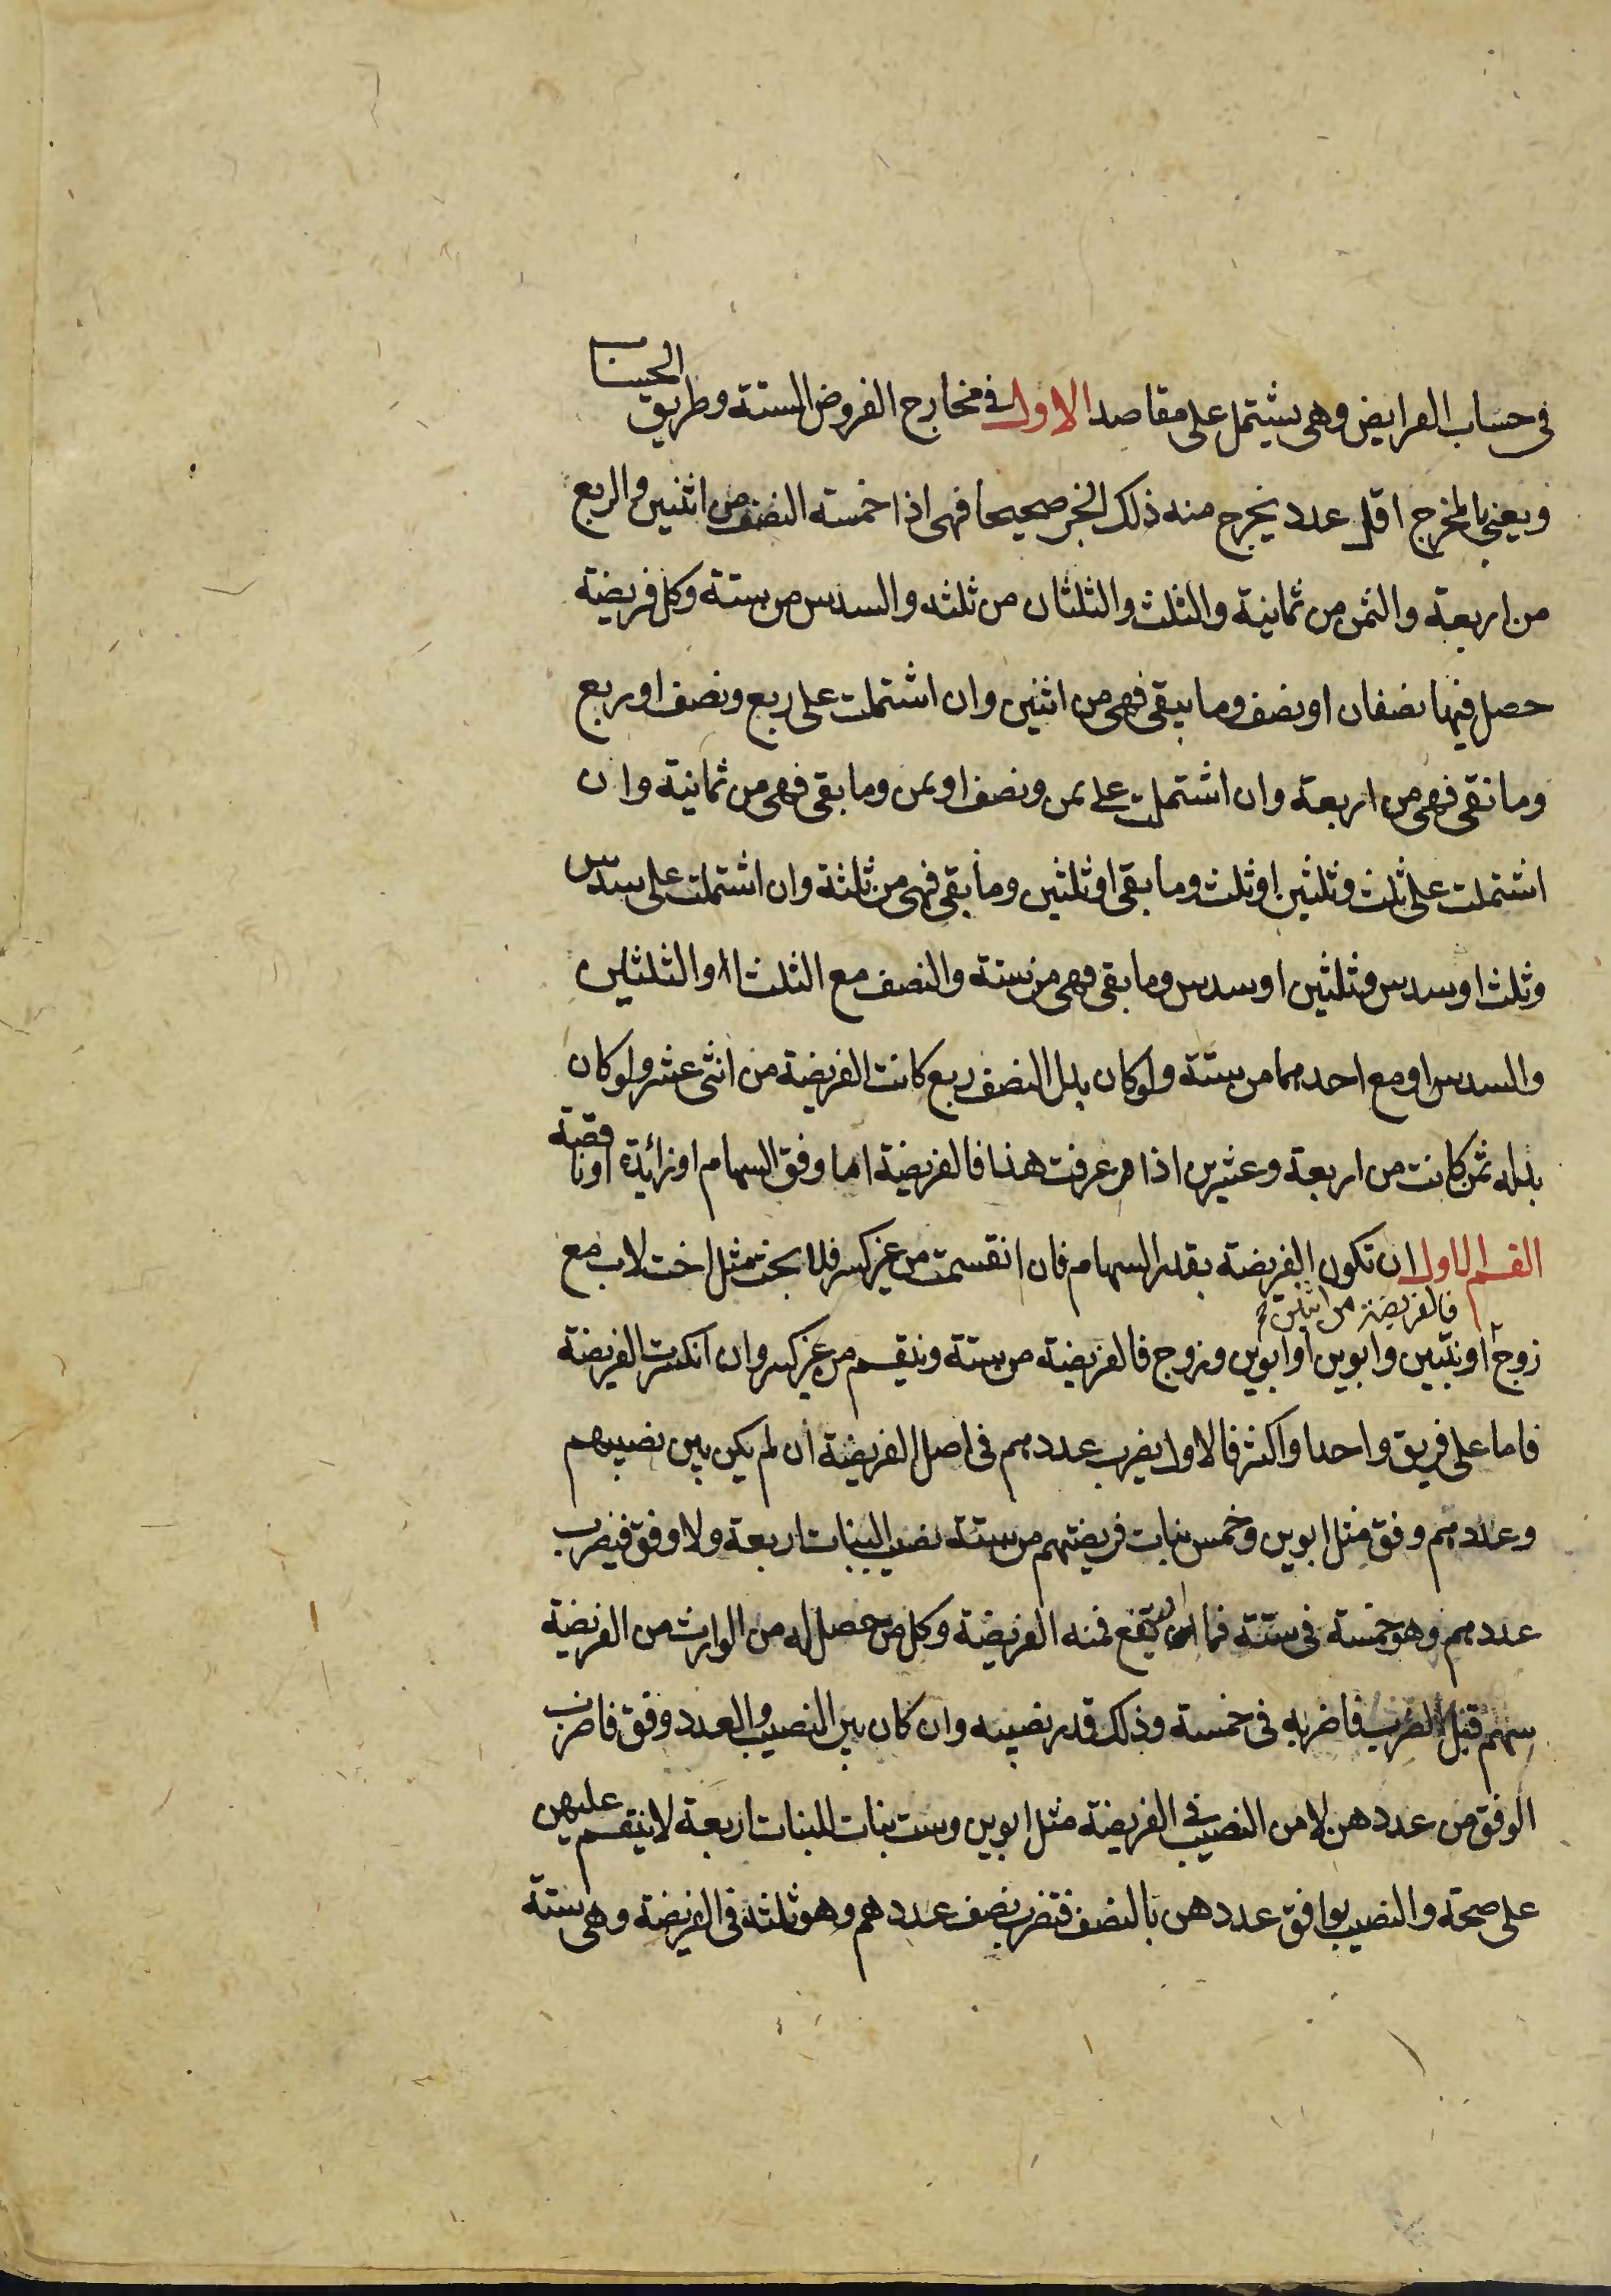 في حساب الفرايض وهي يشتمل على مقاصد الاول في مخارج الفروض الستة وطريق الحساب
ويعني بالمخرج اقل عدد يخرج منه ذلك الجز صحيحا فهي اذا خمسة النصف من اثنين والربع
من اربعة والثمن من ثمانية والثلث والثلثان من ثلثه والسدس من ستة وكل فريضة
حصل فيها نصفان او نصف وما يبقى فهي من اثنين وان اشتملت على ربع ونصف او ربع
وما بقى فهي من اربعة وان اشتملت على ثمن ونصف او ثمن وما بقى فهي من ثمانية وان
اشتملت على ثلث وثلثين او ثلث وما بقى او ثلثين وما بقى فهي من ثلثة وان اشتملت على سدس
وثلث او سدس وثلثين او سدس وما بقى فهي من ستة والنصف مع الثلث او الثلثين
والسدس او مع احدهما من ستة ولو كان بدل النصف ربع كانت الفريضة من اثنى عشر ولو كان
بدله ثمن كانت من اربعة وعشرين اذا عرفت هذا فالفريضة اما وفق السهام او زائدة او ناقصة
القسم الاول ان تكون الفريضة بقدر السهام فان انقسمت من غير كسر فلا بحث مثل اخت لاب مع
فالفريضة من اثنين
زوج او بنتين وابوين او ابوين وزوج فالفريضة من ستة وينقسم من غير كسر وان انكسرت الفريضة
فاما على فريق واحد او اكثر فالاول يضرب عددهم في اصل الفريضة ان لم يكن بين نصيبهم
وعددهم وفق مثل ابوين وخمس بنات فريضتهم من ستة نصيب البنات اربعة ولا وفق فيضرب
عددهم وهو خمسة في ستة فما ارتفع فمنه الفريضة وكل من حصل له من الوارث من الفريضة
سهم قبل الضرب فاضربه في خمسة وذلك قدر نصيبه وان كان بين النصيب والعدد وفق فاضرب
الوفق من عددهن لا من النصيب في الفريضة مثل ابوين وست بنات للبنات اربعة لا ينقسم عليهن
على صحة والنصيب يوافق عددهن بالنصف فتضرب نصف عددهم وهو ثلثة في الفريضة وهي ستة